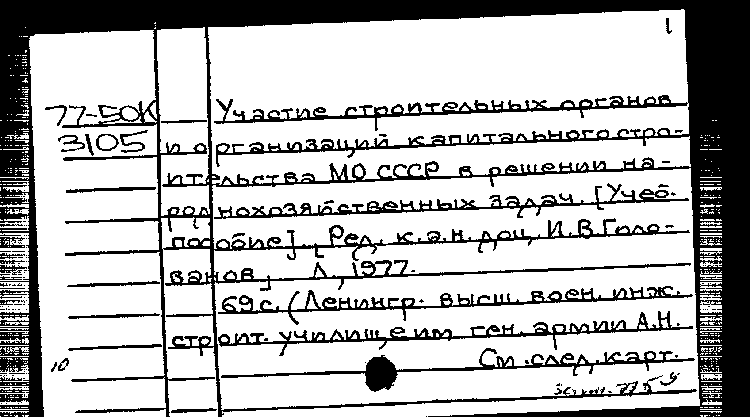 1
77-50К Участие строительных органов
3105 и организаций капитального стро-
ительства МО СССР в решении на-
роднохозяйственных задач. [Учеб.
пособие]. , Ред. к.э.н. доц. И.В.Голо-
ванов, Л., 1977.
69с. (Ленингр. высш. воен. инж.
строит. училище им ген. армии А.Н.
См. след. карт.
10